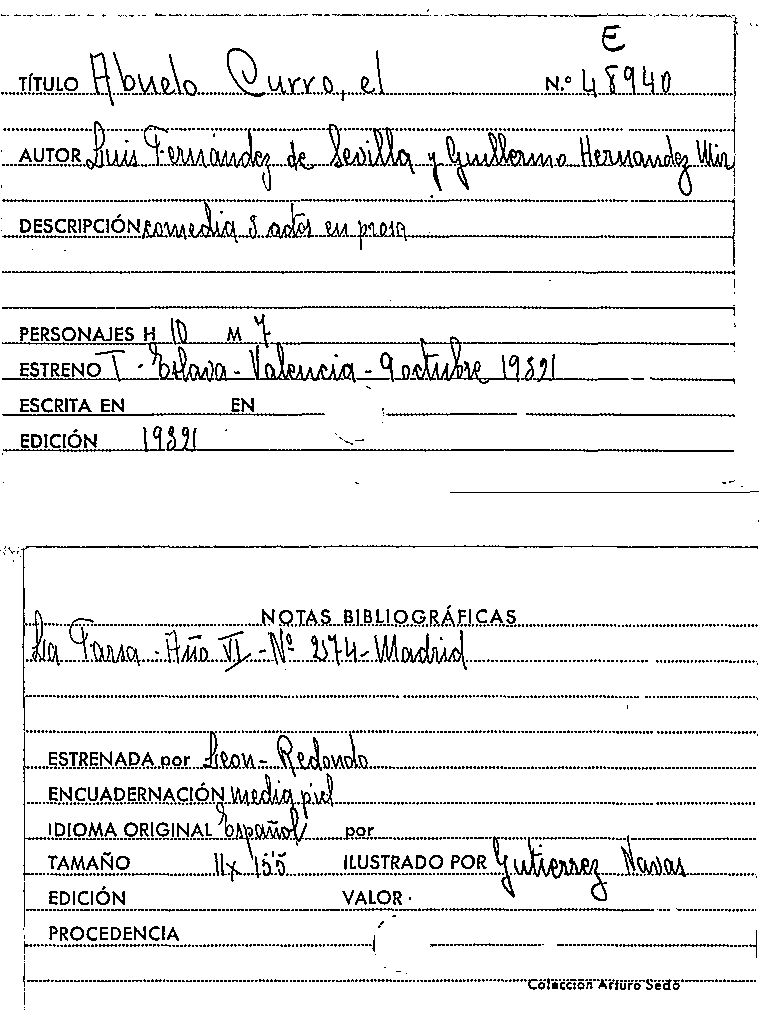 E
TÍTULO Abuelo Curro, el N.º 48940
AUTOR Luis Fernández de Sevilla y Guillermo Hernandez Mir
DESCRIPCIÓN comedia 3 actos en prosa
PERSONAJES H 10 M 7
ESTRENO T. Eslava - Valencia - 9 octubre 1932
ESCRITA EN EN
EDICIÓN 1932
NOTAS BIBLIOGRÁFICAS
La Farsa - Año VI - Nº 274 - Madrid
ESTRENADA por Leon - Redondo
ENCUADERNACIÓN media piel
IDIOMA ORIGINAL Español por
TAMAÑO 11x 15'5 ILUSTRADO POR Gutierrez Navas
EDICIÓN VALOR
PROCEDENCIA
Colección Arturo Sedó